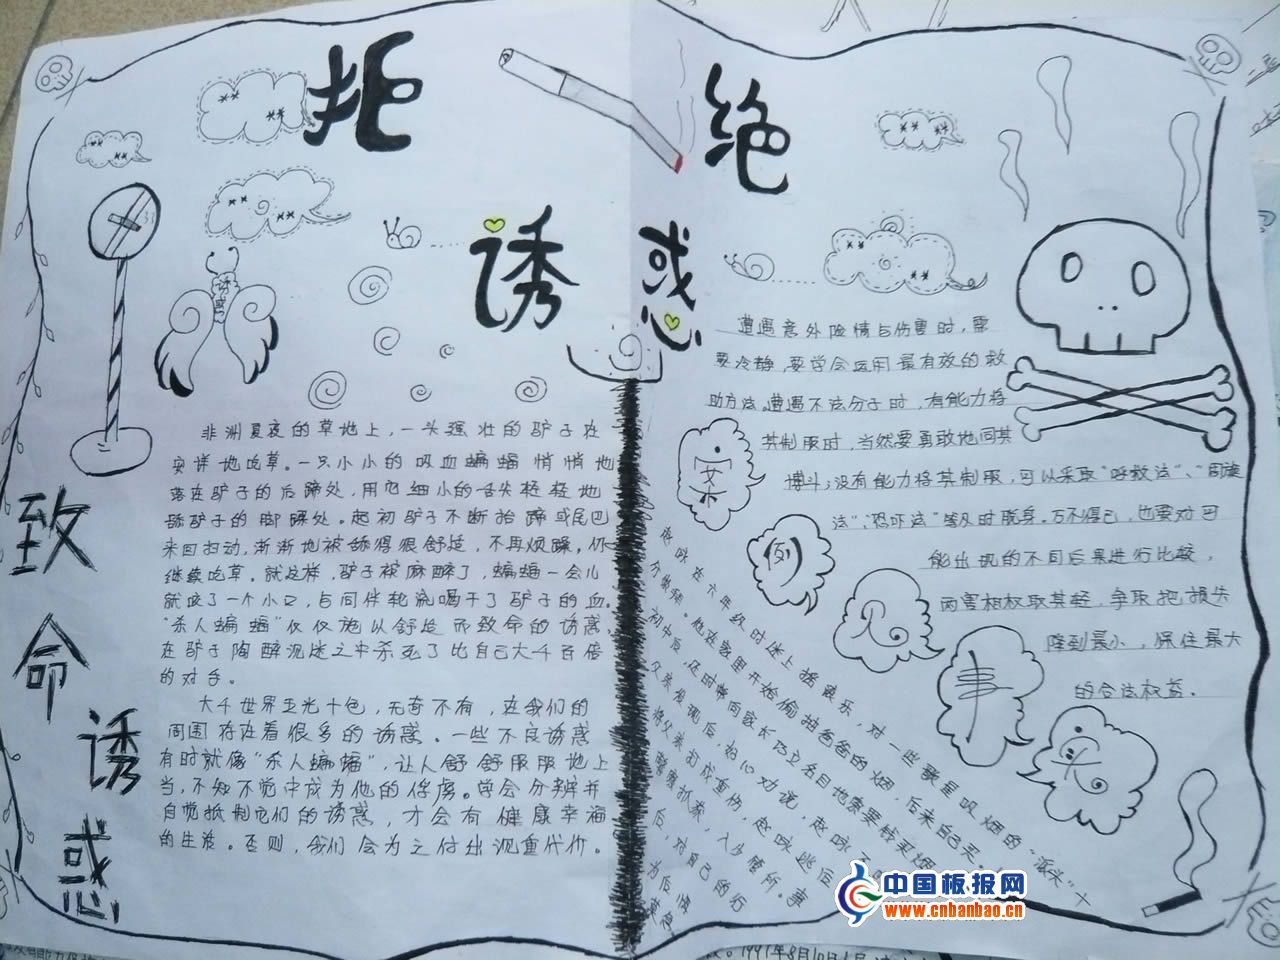 拒绝
诱惑
诱惑
致命诱惑
非洲夏夜的草地上，一头强壮的驴子在
安详地吃草。一只小小的吸血蝙蝠悄悄地
落在驴子的后蹄处，用它细小的舌尖轻轻地
舔驴子的脚踝处。起初驴子不断抬蹄或尾巴
来回扫动，渐渐地被舔得很舒适，不再烦躁，仍
继续吃草。就这样，驴子被麻醉了，蝙蝠一会儿
就咬了一个小口，与同伴轮流喝干了驴子的血。
“杀人蝙蝠”仅仅施以舒适而致命的诱惑
在驴子陶醉沉迷之中杀死了比自己大千百倍
的对手。
大千世界五光十色，无奇不有，在我们的
周围存在着很多的诱惑。一些不良诱惑
有时就像“杀人蝙蝠”，让人舒舒服服地上
当，不知不觉中成为他的俘虏。学会分辨并
自觉抵制它们的诱惑，才会有健康幸福
的生活。否则，我们会为之付出沉重代价。
遭遇意外险情与伤害时，需
要冷静，要学会运用最有效的救
助方法。遭遇不法分子时，有能力将
其制服时，当然要勇敢地同其
搏斗；没有能力将其制服，可以采取“呼救法”、“周旋
法”、“恐吓法”等及时脱身。万不得已，也要对可
能出现的不同后果进行比较，
两害相权取其轻，争取把损失
降到最小，保住最大
的合法权益。
女
例
人
事
父
赵咏在六年级时迷上摇滚乐，对一些歌星吸烟的“派头”十
分敬佩。他在家里开始偷抽爸爸的烟，后来自己买。
初中后，还时常向家长巧立名目地索要钱买烟
父亲发现后，好心劝说，赵咏不
将父亲打成重伤，赵咏逃后
警察抓家，入少管所。事
后，对自己的行
为后悔
中国板报网
www.cnbanbao.cn